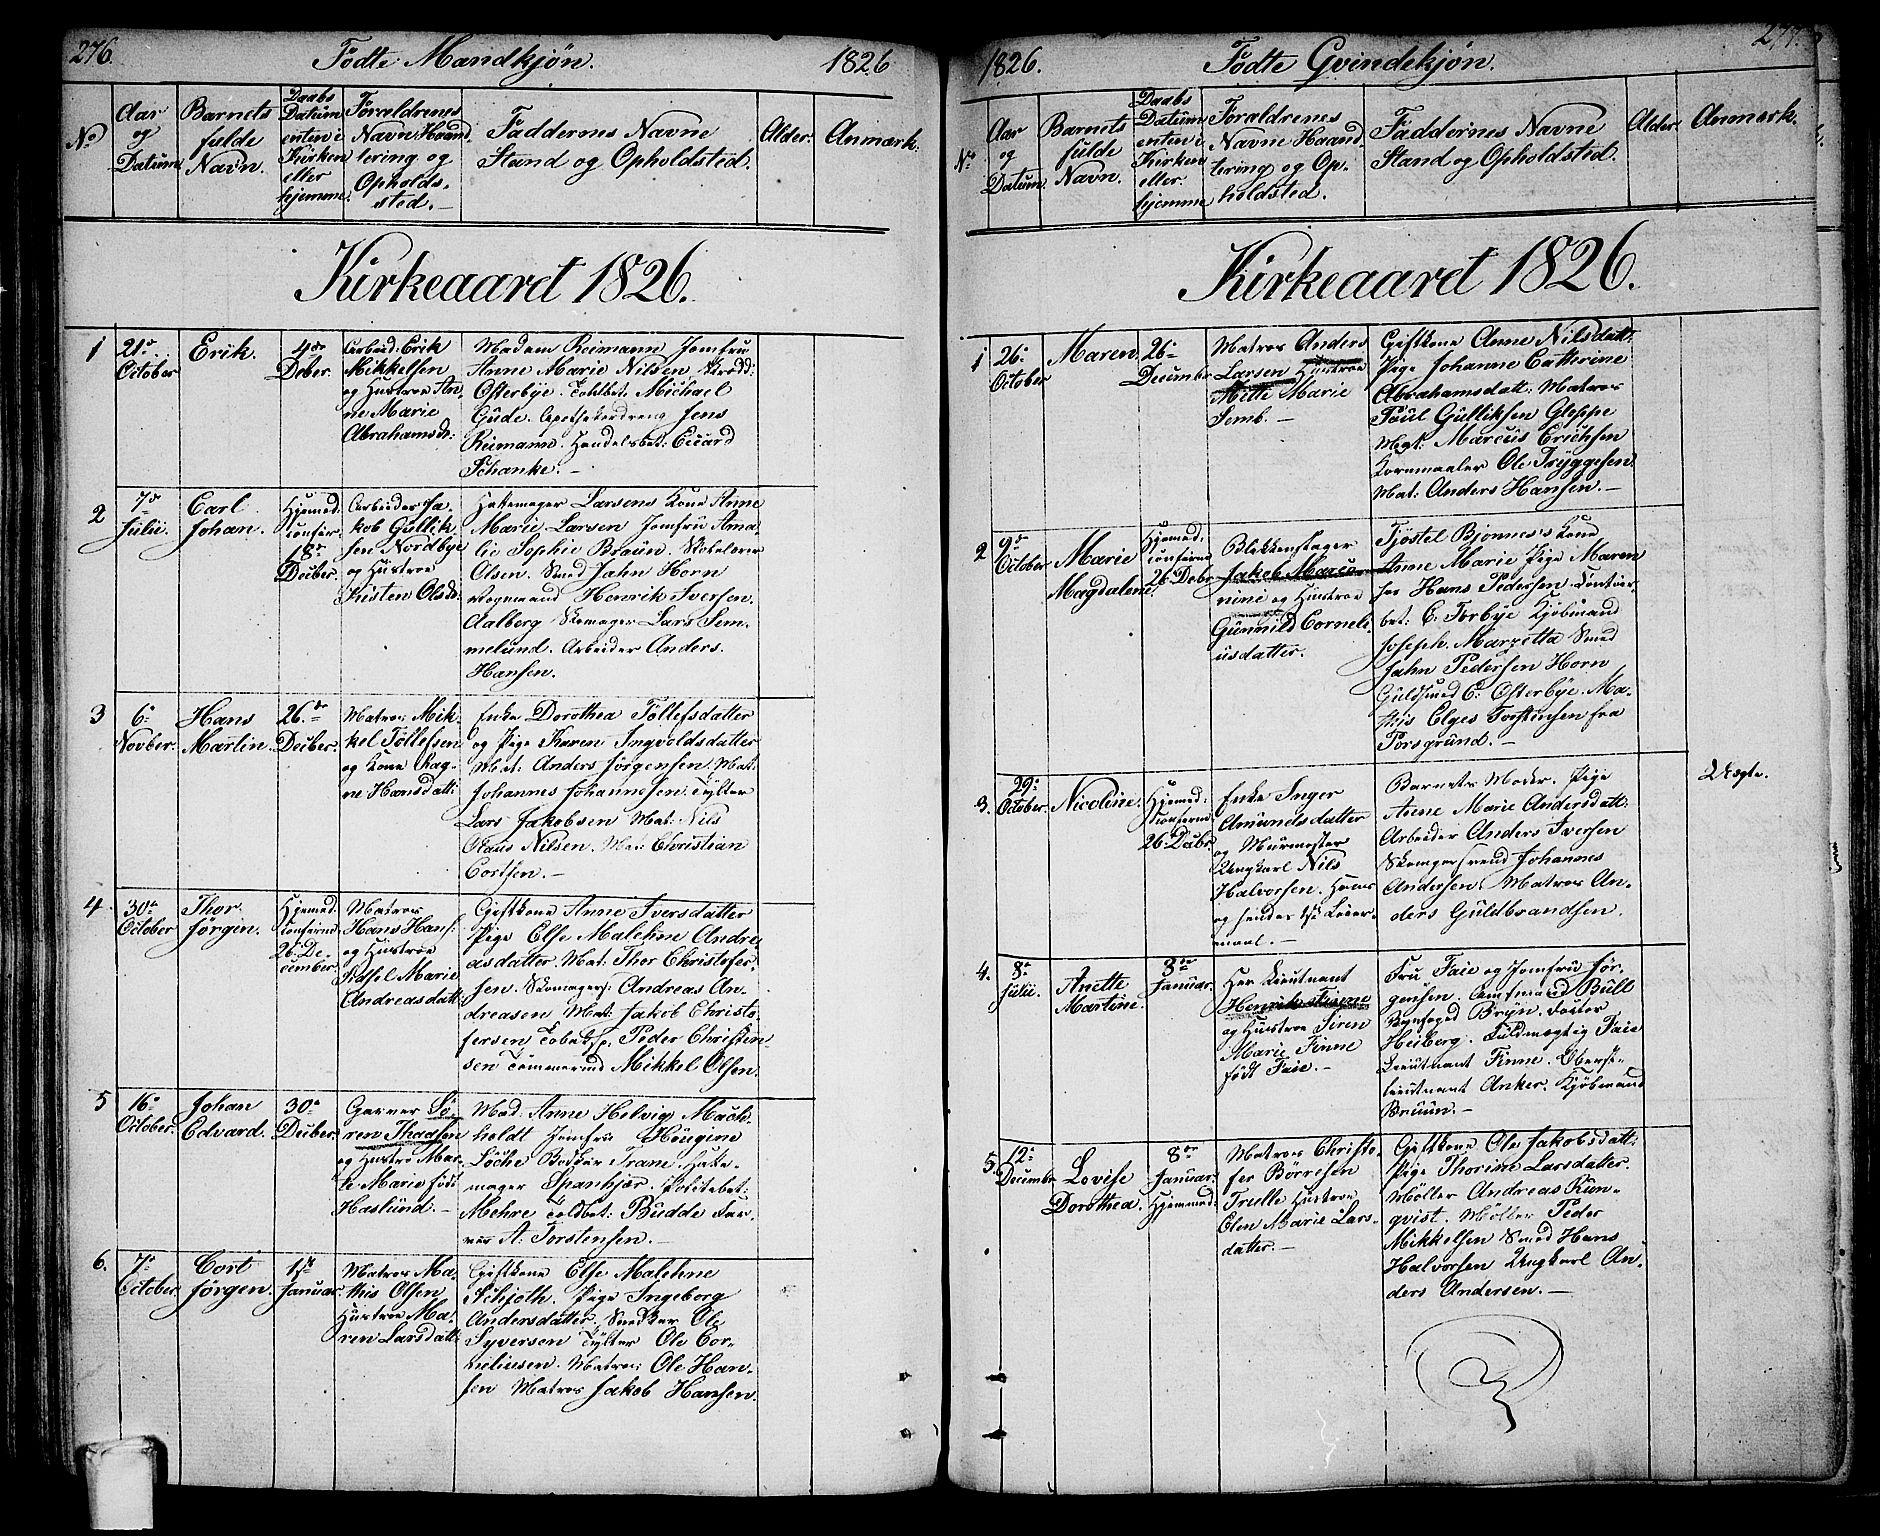 276.
Födte Mandkjön.
1826
No
Aar
og
Datum
Barnets
fulde
Navn.
Daabs
Datum
enten i
Kirken
eller
hjemme
Foraldrenes
Navn, Haand
tering og
Opholds-
sted.-
Faddernes Navne
Stand og Opholdsted.
Alder.
Anmærk.
Kirkeaaret 1826.
1
21de
October
Erik.
4de
Deber.
Arbeid: Erik
Mikkelsen
og Hustroe An
ne Marie
Abrahamsd:
Madam Reimann Jomfru
Anne Marie Nilsen
Osterbye. Toldbet: Michael
Gude. Apothekerdreng Jens
Reimann. Handelsbet: Eduard
Schanke. -
2
7de
Julii.
Carl
Johan.
Hjemed.
confir.
18de
Decber.
Arbeider Ja-
kob Gullik
sen Nordbye
og Hustroe
Kirsten Olsd:
Hattemager Larsens Kone Anne
Marie Larsen Jomfru Ama-
lie Sophie Braun. Skoelærer
Olsen. Smed Jahn Horn
Vognmand Henrik Iversen.
Aalberg Skomager Lars Sem-
melund. Arbeider Anders
Hansen.
3
6te
Novber.
Hans
Martin.
26de
Decber.
Matros: Mik-
kel Tollefsen
og Kone Rag-
ne Hansdatt:
Enke Dorothea Tollefsdatter
og Pige Karen Ingvoldsdatter
Mat: Anders Jörgensen. Mat:
Johannes Johannesen. Tylter
Lars Jakobsen Mat: Nils
Claus Nilsen. Mat: Christian
Cortsen. -
4
30te
October
Thor
Jörgen.
Hjemed.
confirmd
26. De-
cember.
Matros
Hans Hans:
og Hustroe
Sidsel Marie
Andreasdatt:
Giftkone Anne Iversdatter
Pige Else Malehne Andre-
asdatter. Mat: Thor Christofer-
sen. Skomagers: Andreas An-
dreasen Mat: Jakob Christo-
fersen Tobaksp. Peder Christen-
sen Tömmermd Mikkel Olsen.
5
16de
October.
Johan
Edvard.
30te
Decber.
Garver Sö-
ren Thaasen
og Hustroe Mar-
te Marie födt
Haslund. -
Mad. Anne Helvig Mach-
holdt Jomfru Hougine
Löche Bödker Trane. Hatte-
mager Spanhjær. Politiebet:
Mehre Toldbet: Budde Far-
ver A: Torstensen. -
6.
7de
October
Cort
Jörgen.
1ste
Januar.
Matros Ma-
this Olsen
Hustroe Ma-
ren Larsdatt:
Giftkone Else Malehne
Schjoth. Pige Ingeborg
Andersdatter. Snedker Ole
Syversen Tylter Ole Cor-
neliusen. Matros: Ole Han-
sen Matros Jakob Hansen.
1826.
Födte Qvindekjön.
277.
No
Aar
og
Datum.
Barnets
fulde
Navn.
Daabs
Datum
enten i
Kirken
eller
hjemme
Foraldrenes
Navne Haand
tering og Op-
holdsted.
Faddernes Navne
Stand og Opholdsted.
Alder.
Anmærk.
Kirkeaaret 1826.
1
26de
October
Maren.
26de
Decembr
Matros Anders
Larsen Hustroe
Mette Marie
Semb. -
Giftkone Anne Nilsdatt:
Pige Johanne Cathrine
Abrahamsdatt: Matros
Poul Gulliksen Gleppe
Mgk. Marcus Erichsen
Kornmaaler Ole Tryggesen.
Mat: Anders Hansen. -
2
9de
October
Marie
Magdalene.
Hjemed:
confirme
26. Debr
Blikkenslager
Jakob Marco-
nini og Hustroe
Gunnild Corneli-
usdatter.
Tjöstel Bjonnes's Kone
Anne Marie Pige Maren
Hans Pedersen. Contoir-
bet: E. Torbye Kjöbmand
Joseph Marzetta Smed
Jahn Pedersen Horn
Guldsmed C: Osterbye. Ma-
this Elges Torstensen fra
Porsgrund. -
3.
29de
October.
Nicoline.
Hjemed:
confirmd
26. Debr.
Enke Inger
Amundsdatter
og Murmester
Ungkarl Nils
Halvorsen. Hans
og hendes 1ste Leier-
maal. -
Barnets Moder. Pige
Anne Marie Andersdatt:
Arbeider Anders Iversen
Skomagersvend Johannes
Andersen. Matros An-
ders Guldbrandsen.
Uægte.
4.
8de
Julii.
Anette
Martine.
3die
Januar.
Her Lieutnant
Henrik Finne
og Hustroe Siren
Marie Finne
födt Faie. -
Fru Faie og Jomfru Jör-
gensen. Amtmand Bull
Byefoged Bryn. Foster
Heiberg. Fuldmægtig Faie
Lieutnant Finne. Oberst-
lieutnant Anker. Kjöbmand
Bruun. -
5.
12te
Decembr
Lovise
Dorothea.
8de
Januar.
Hjemmed:
Matros Christo-
fer Börresen
Trulle Hustroe
Olen Marie Lars-
datter. -
Giftkone Ole Jakobsdatt:
Pige Thorine Larsdatter.
Möller Andreas Kun-
qvist. Möller Peder
Mikkelsen Smed Hans
Halvorsen Ungkarl An-
ders Andersen. -